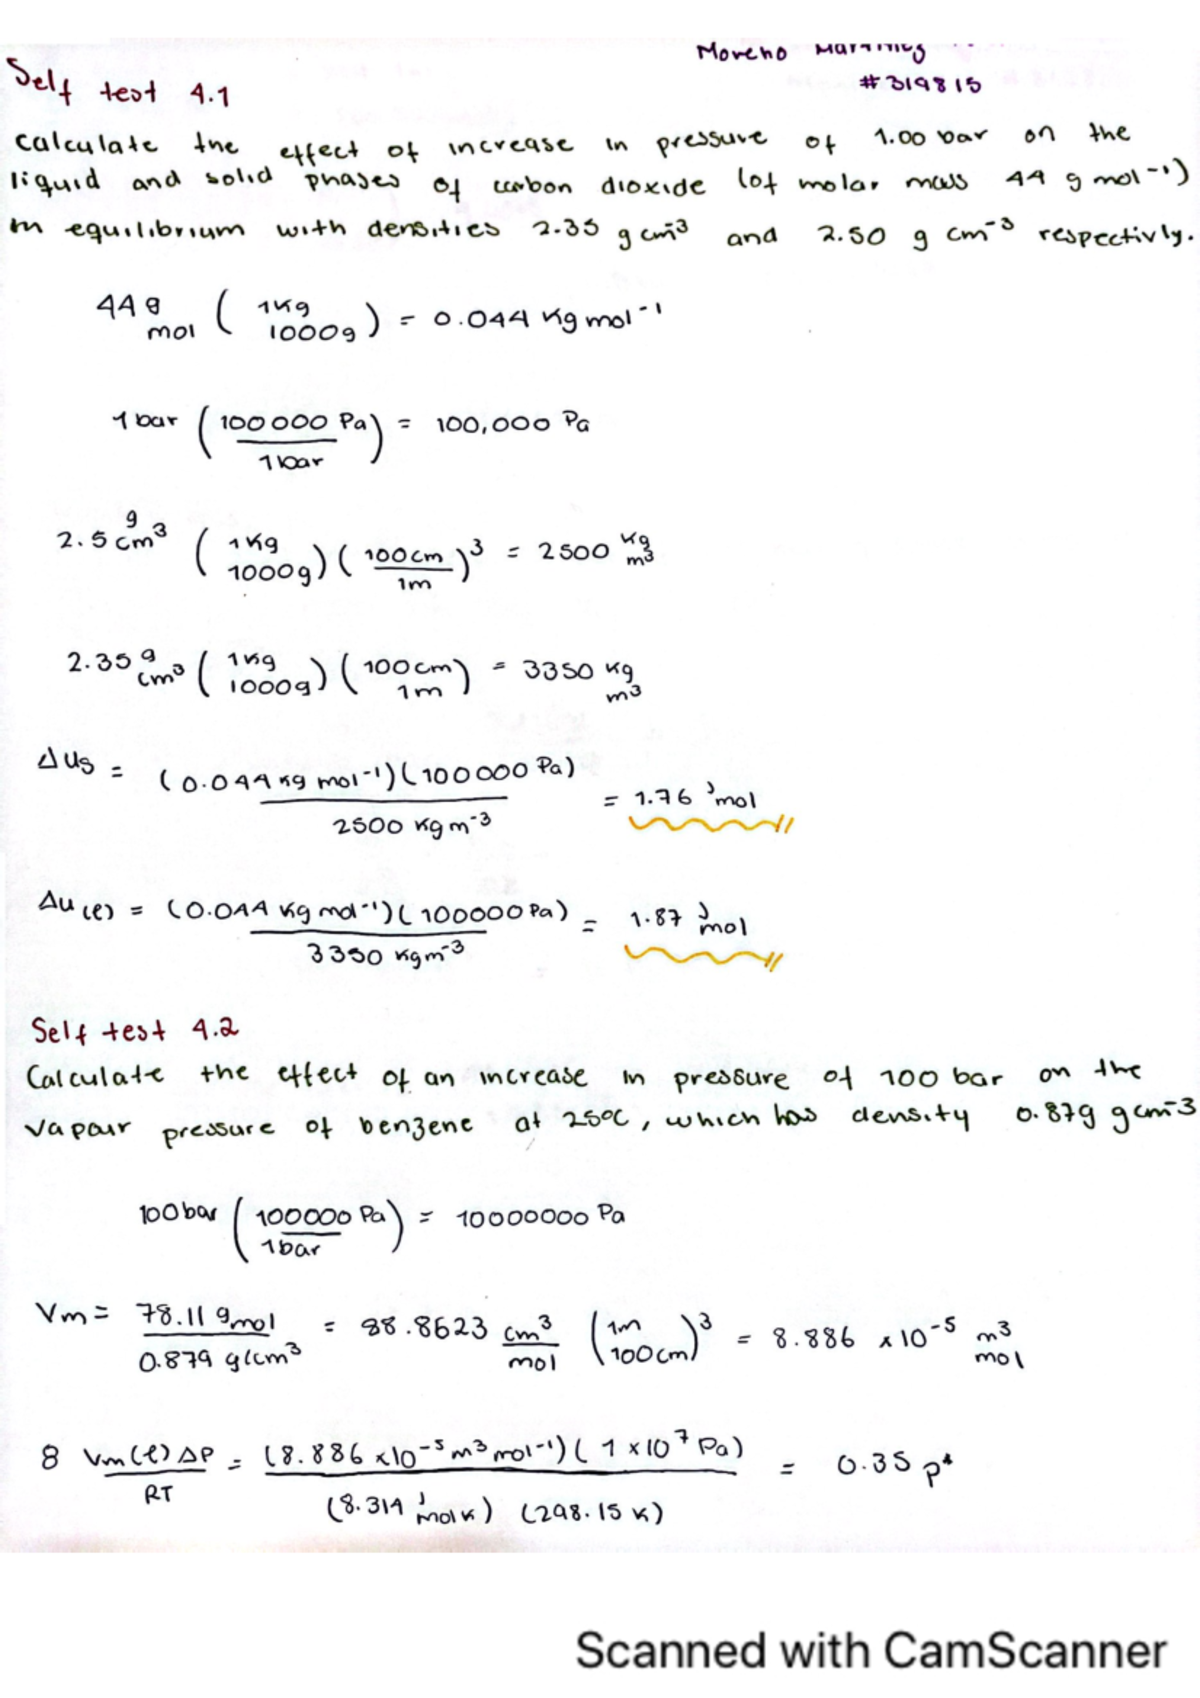 Moreno
Self test 4.1
#319815
Calculate the effect of increase in pressure of 1.00 bar on the
liquid and solid phases of carbon dioxide (of molar mass 44 g mol⁻¹)
in equilibrium with densities 2.35 g cm⁻³ and 2.50 g cm⁻³ respectivly.
44 g/mol (1kg/1000g) = 0.044 kg mol⁻¹
1 bar (100000 Pa/1 bar) = 100,000 Pa
2.5 g/cm³ (1kg/1000g)(100cm/1m)³ = 2500 kg/m³
2.35 g/cm³ (1kg/1000g)(100cm/1m) = 3350 kg/m³
Δus = (0.044 kg mol⁻¹)(100000 Pa)/2500 kg m⁻³ = 1.76 J/mol
Δu(l) = (0.044 kg mol⁻¹)(100000 Pa)/3350 kg m⁻³ = 1.87 J/mol
Self test 4.2
Calculate the effect of an increase in pressure of 100 bar on the
vapour pressure of benzene at 25°C, which has density 0.879 g cm⁻³
100 bar (100000 Pa/1 bar) = 10000000 Pa
Vm = 78.11 g mol/0.879 g/cm³ = 88.8623 cm³/mol (1m/100cm)³ = 8.886 x10⁻⁵ m³/mol
8 Vm(l) ΔP/RT = (8.886 x10⁻⁵ m³ mol⁻¹)(1 x10⁷ Pa)/(8.314 J/mol K)(298.15 K) = 0.35 p*
Scanned with CamScanner